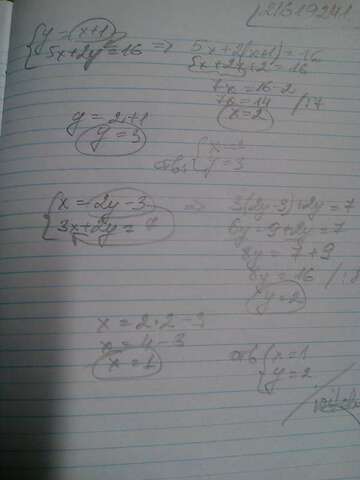 {y = (x+1)
5x+2y=16 => 5x+2(x+1)=16
5x+2x+2=16
7x=16-2
7x=14 /:7
x=2
y=2+1
y=3
{x=2
y=3
{x=2y-3
3x+2y=7 => 3(2y-3)+2y=7
6y-9+2y=7
8y=7+9
8y=16 /:8
y=2
x=2·2-3
x=4-3
x=1
{x=1
y=2